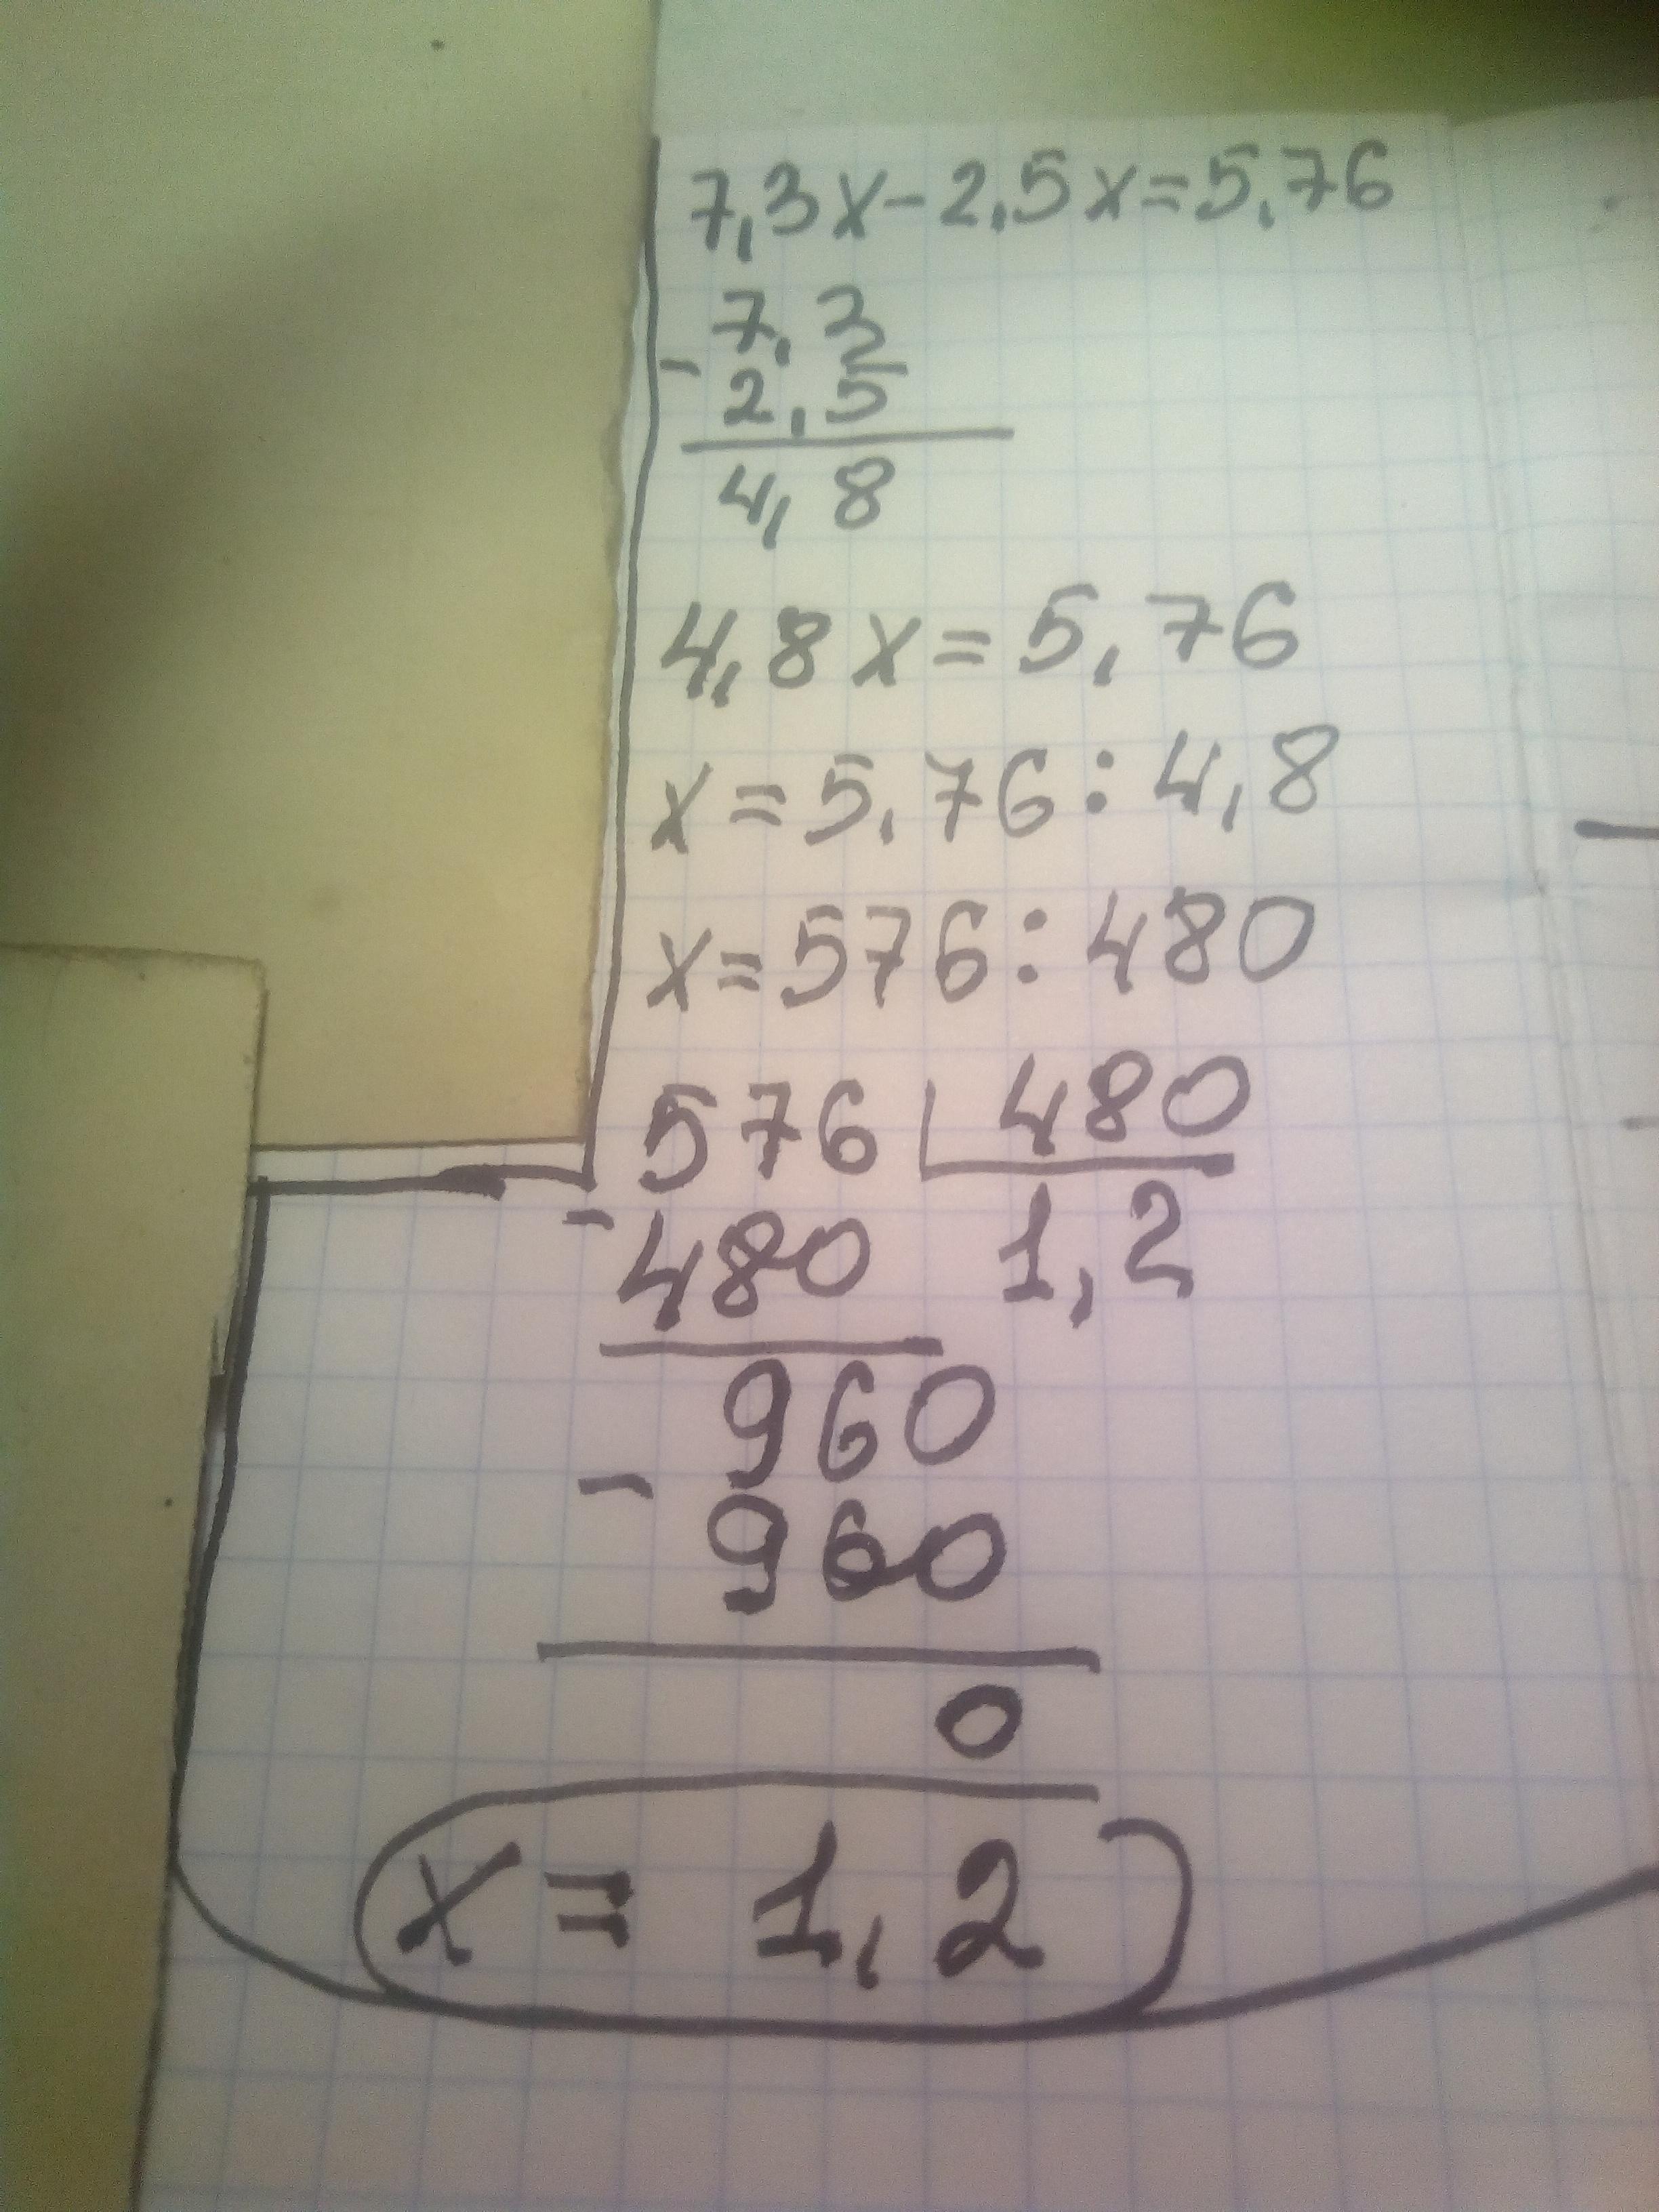 7,3x-2,5x=5,76
7,3
- 2,5
4,8
4,8x=5,76
x=5,76:4,8
x=576:480
576 480
- 480 1,2
960
- 960
0
x=1,2